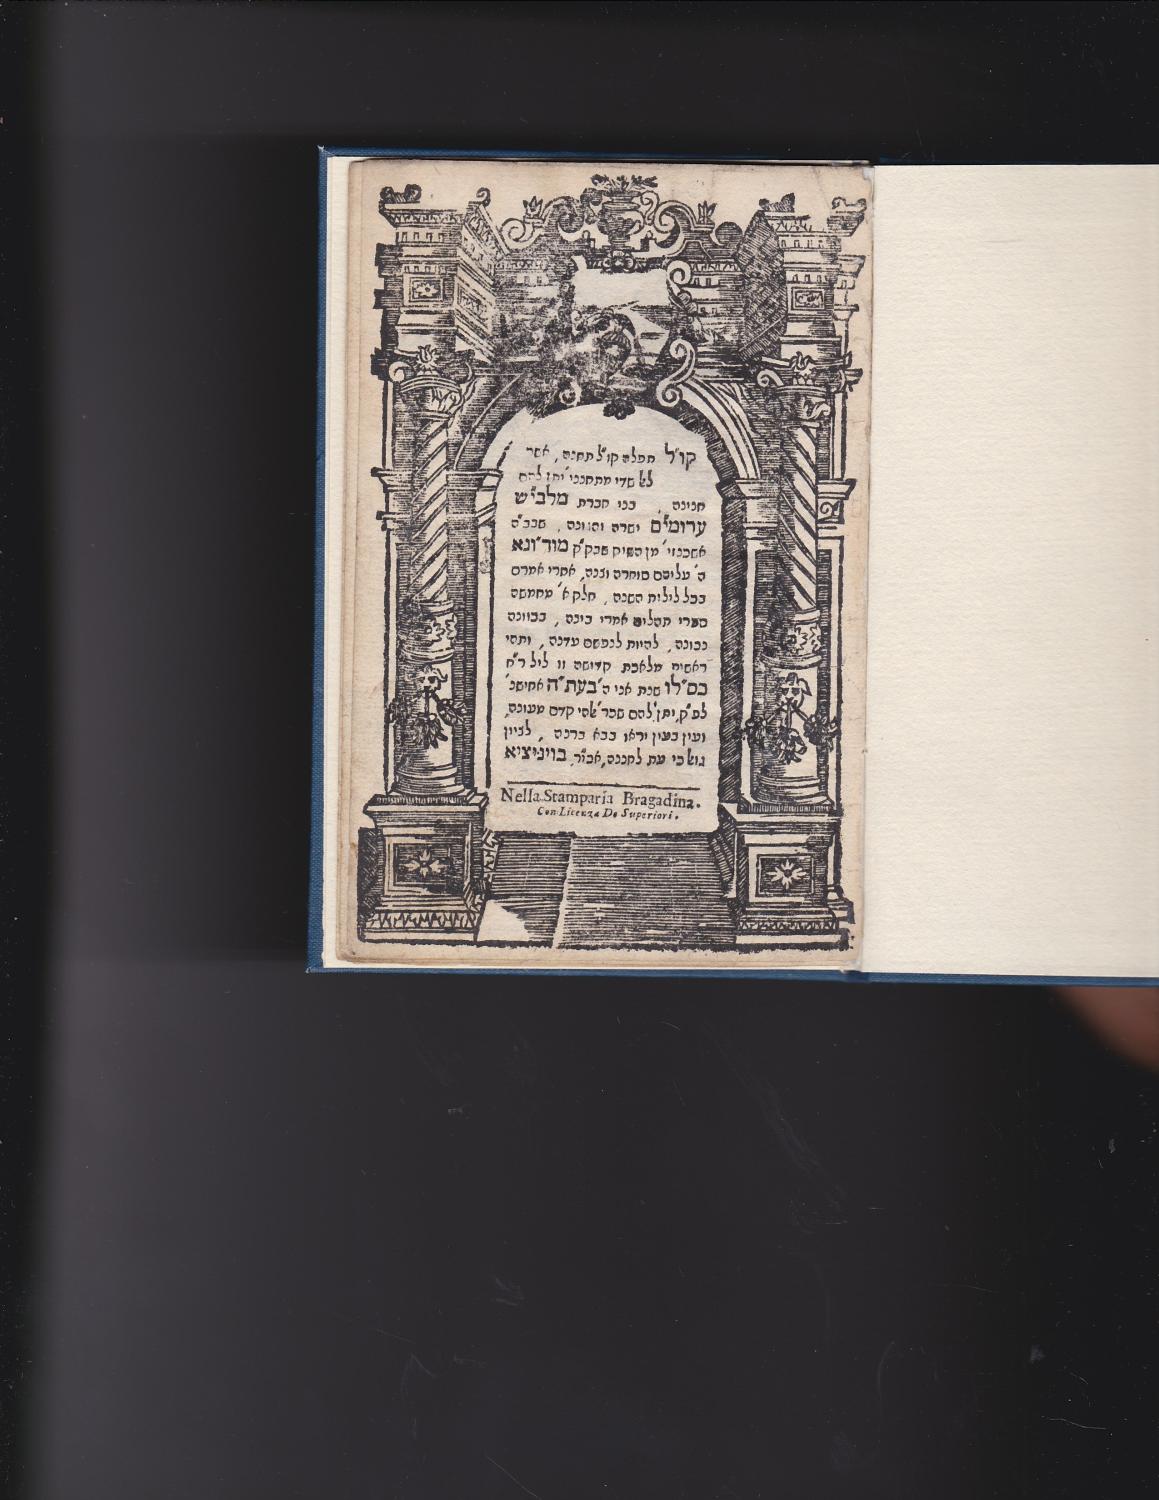 קו"ל תפלה קו"ל תחנה, אשר
לא שדי מתחנני' יתן להם
חנינה, בני חברת מלבי"ש
ערומי"ם ישרה והגונה, שבב"ה
אשכנזי' מן השיק שבק"ק מוד"ונא
ה' עליהם סוחרה וצנה, אמרי אמרם
בכל לילות השנה, חלק א' מחמשה
ספרי תהלים אמרי בינה, בכוונה
נכונה, להיות לנפשם עדנה, ותהי
ראשית מלאכת קדושה זו ליל ר"ח
כס"לו שנת אני ה' בעת"ה אחישנ'
לפ"ק, יתן להם שכר אלהי קדם מעונה,
ועין בעין יראו בבא ברנה, לציון
גוש כי עת לחננה, אכי"ר, בויניציא
Nella Stamparia Bragadina.
Con Licenza De Superiori.